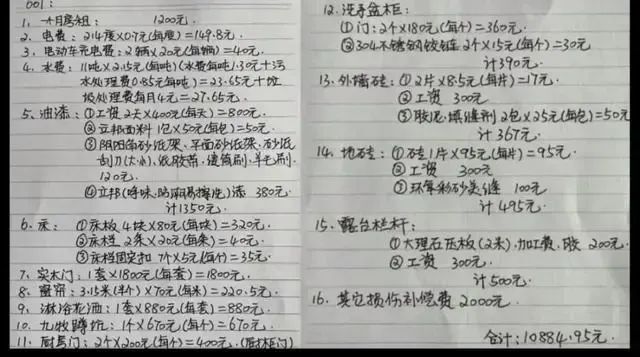 001:
1. 一个月房租: 1200元.
2. 电费: 214度×0.7元(每度)=149.8元.
3. 电动车充电费: 2辆×20元(每辆)=40元.
4. 水费: 11吨×2.15元(每吨)(水费每吨1.30元+污
水处理费0.85元每吨)=23.65元+垃
圾处理费每月4元=27.65元.
5. 油漆: ①工资2天×400元(每天)=800元.
②立邦面料 1包×50元(每包)=50元.
③阴阳角砂纸架、平面砂纸架、砂纸
刮刀(大小)、纸胶带、滚筒刷、羊毛刷.
120元.
④立邦(呼吸、防潮易擦洗)漆 380元.
计1350元.
6. 床: ①床板 4块×80元(每块)=320元.
②床档 2条×20元(每条)=40元.
③床档固定扣 7个×5元(每个)=35元.
7. 实木门: 1套×1800元(每套)=1800元.
8. 窗帘: 3.15米(半个)×70元(每米)=220.5元.
9. 淋浴花洒: 1套×880元(每套)=880元.
10. 九牧蹲坑: 1个×670元(每个)=670元.
11. 厨房门: 2个×200元(每个)=400元. (厨柜门)
12. 洗手盆柜:
①门: 2个×180元(每个)=360元.
②304不锈钢铰链 2个×15元(每个)=30元
计390元.
13. 外墙砖: ①2片×8.5元(每片)=17元.
②工资 300元
③胶泥、填缝剂 2包×25元(每包)=50元
计367元.
14. 地砖: ①砖1片×95元(每片)=95元.
②工资 300元
③环氧彩砂美缝 100元
计495元.
15. 露台栏杆:
①大理石压板(2米)、加工费、胶 200元.
②工资 300元.
计500元.
16. 其它损伤补偿费 2000元.
合计: 10884.95元.